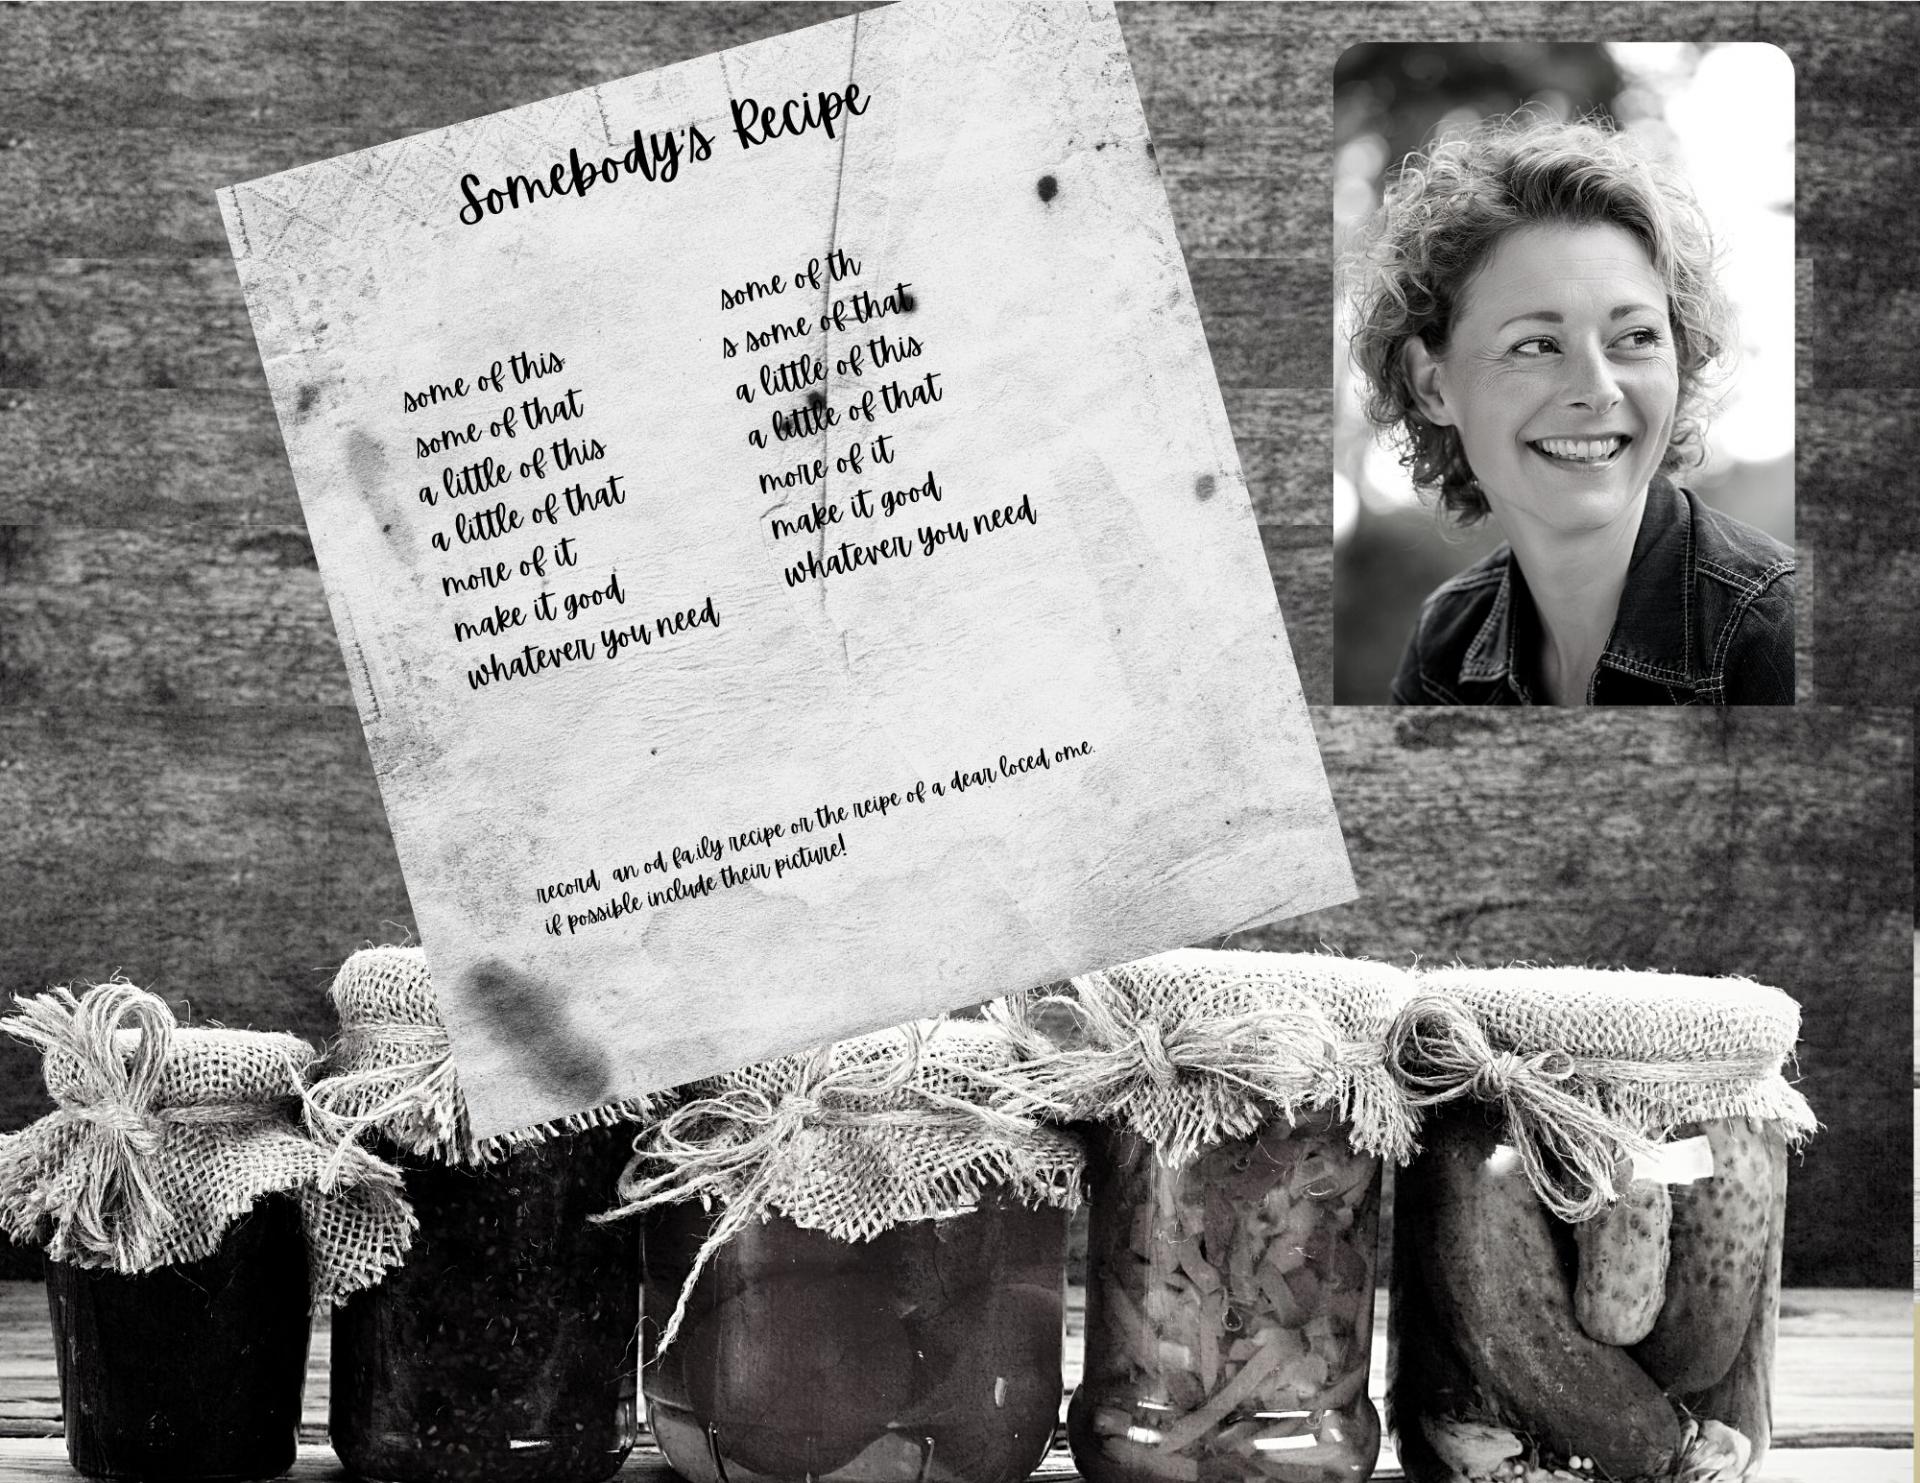 Somebody's Recipe
some of this
some of that
a little of this
a little of that
more of it
make it good
whatever you need
some of th
s some of that
a little of this
a little of that
more of it
make it good
whatever you need
record an od fa.ily recipe or the reipe of a dear loced ome.
if possible include their picture!